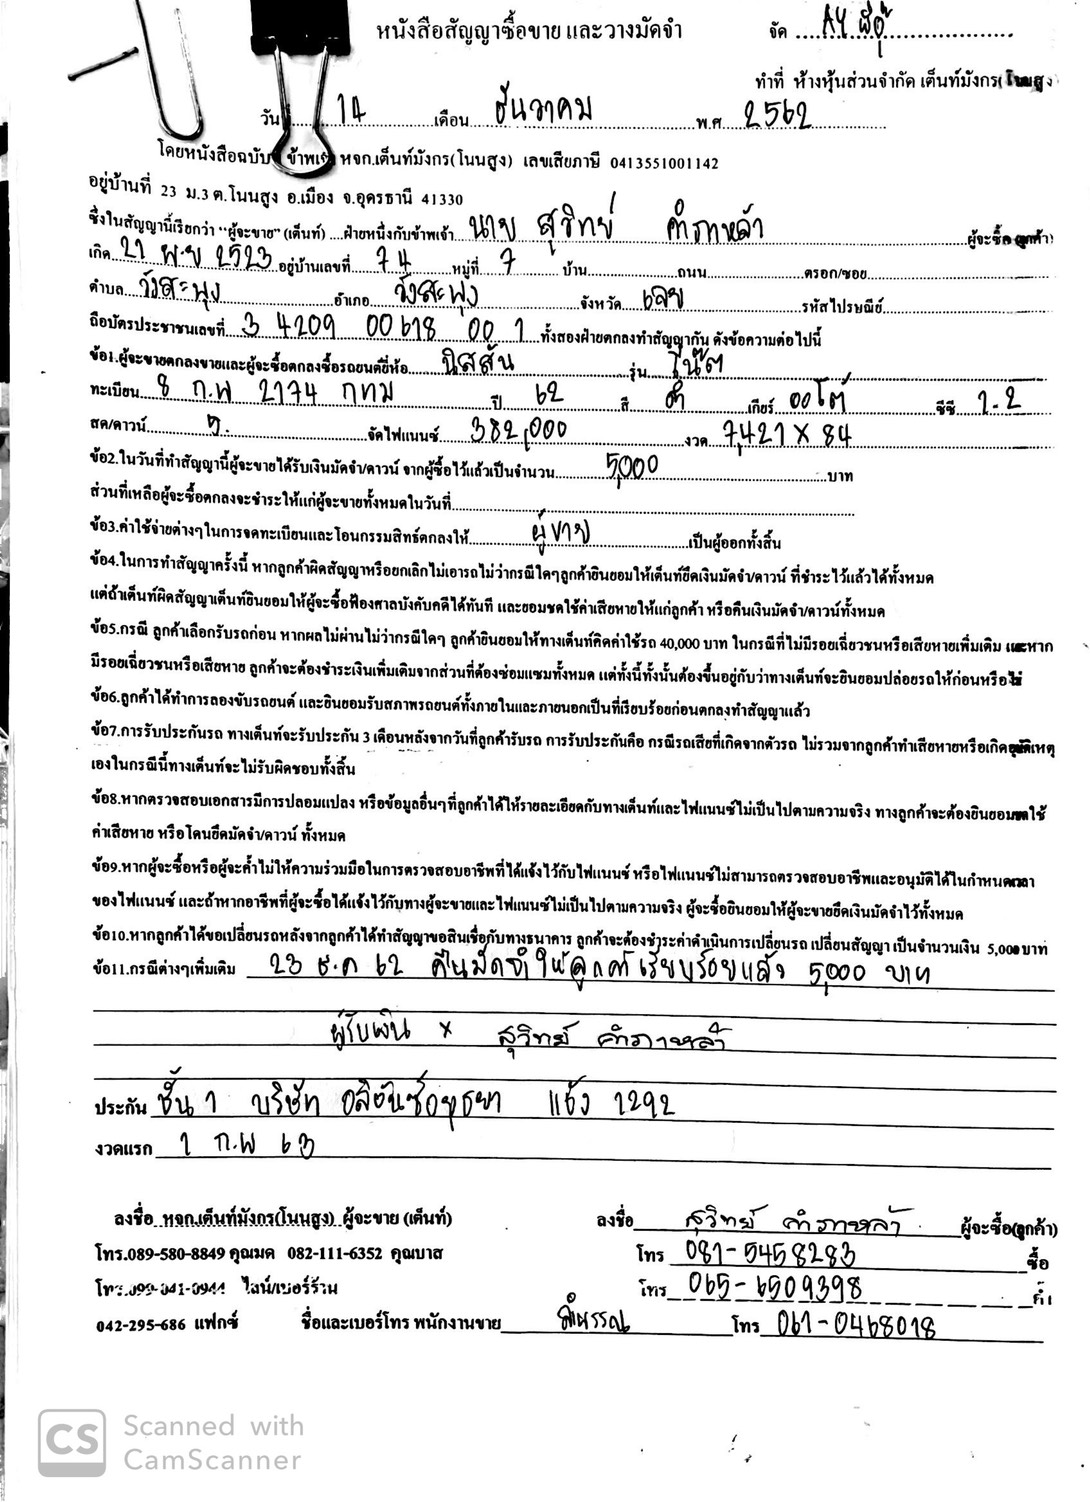 หนังสือสัญญาซื้อขาย และวางมัดจำ
จัด AY
ทำที่ ห้างหุ้นส่วนจำกัด เต็นท์มังกร(โนนสูง
วัน 14 เดือน ธันวาคม พ.ศ 2562
โดยหนังสือฉบับ ข้าพเจ้ หจก.เต็นท์มังกร(โนนสูง) เลขเสียภาษี 0413551001142
อยู่บ้านที่ 23 ม.3 ต.โนนสูง อ.เมือง จ.อุดรธานี 41330
ซึ่งในสัญญานี้เรียกว่า "ผู้จะขาย" (เต็นท์) ....ฝ่ายหนึ่งกับข้าพเจ้า นาย สุวิทย์ คำภาหล้า ผู้จะซื้อ (ลูกค้า)
เกิด 27 พ.ย 2523 อยู่บ้านเลขที่ 74 หมู่ที่ 7 บ้าน ถนน ตรอก/ซอย
ตำบล วังสะพุง อำเภอ วังสะพุง จังหวัด เลย รหัสไปรษณีย์
ถือบัตรประชาชนเลขที่ 3 4209 00618 00 1 ทั้งสองฝ่ายตกลงทำสัญญากัน ดังข้อความต่อไปนี้
ข้อ1.ผู้จะขายตกลงขายและผู้จะซื้อตกลงซื้อรถยนต์ยี่ห้อ นิสสัน รุ่น โน๊ต
ทะเบียน 8 ก.พ 2174 กทม ปี 62 สี ดำ เกียร์ ออโต้ ซีซี 1.2
สด/ดาวน์ จัดไฟแนนซ์ 382,000 งวด 7,421 X 84
ข้อ2.ในวันที่ทำสัญญานี้ผู้จะขายได้รับเงินมัดจำ/ดาวน์ จากผู้ซื้อไว้แล้วเป็นจำนวน 5,000 บาท
ส่วนที่เหลือผู้จะซื้อตกลงจะชำระให้แก่ผู้จะขายทั้งหมดในวันที่
ข้อ3.ค่าใช้จ่ายต่างๆในการจดทะเบียนและโอนกรรมสิทธ์ตกลงให้ ผู้ขาย เป็นผู้ออกทั้งสิ้น
ข้อ4.ในการทำสัญญาครั้งนี้ หากลูกค้าผิดสัญญาหรือยกเลิกไม่เอารถไม่ว่ากรณีใดๆลูกค้ายินยอมให้เต็นท์ยึดเงินมัดจำ/ดาวน์ ที่ชำระไว้แล้วได้ทั้งหมด
แต่ถ้าเต็นท์ผิดสัญญาเต็นท์ยินยอมให้ผู้จะซื้อฟ้องศาลบังคับคดีได้ทันที และยอมชดใช้ค่าเสียหายให้แก่ลูกค้า หรือคืนเงินมัดจำ/ดาวน์ทั้งหมด
ข้อ5.กรณี ลูกค้าเลือกรับรถก่อน หากผลไม่ผ่านไม่ว่ากรณีใดๆ ลูกค้ายินยอมให้ทางเต็นท์คิดค่าใช้รถ 40,000 บาท ในกรณีที่ไม่มีรอยเฉี่ยวชนหรือเสียหายเพิ่มเติม และหาก
มีรอยเฉี่ยวชนหรือเสียหาย ลูกค้าจะต้องชำระเงินเพิ่มเติมจากส่วนที่ต้องซ่อมแซมทั้งหมด แต่ทั้งนี้ทั้งนั้นต้องขึ้นอยู่กับว่าทางเต็นท์จะยินยอมปล่อยรถให้ก่อนหรือไม่
ข้อ6.ลูกค้าได้ทำการลองขับรถยนต์ และยินยอมรับสภาพรถยนต์ทั้งภายในและภายนอกเป็นที่เรียบร้อยก่อนตกลงทำสัญญาแล้ว
ข้อ7.การรับประกันรถ ทางเต็นท์จะรับประกัน 3 เดือนหลังจากวันที่ลูกค้ารับรถ การรับประกันคือ กรณีรถเสียที่เกิดจากตัวรถ ไม่รวมจากลูกค้าทำเสียหายหรือเกิดอุบัติเหตุ
เองในกรณีนี้ทางเต็นท์จะไม่รับผิดชอบทั้งสิ้น
ข้อ8.หากตรวจสอบเอกสารมีการปลอมแปลง หรือข้อมูลอื่นๆที่ลูกค้าได้ให้รายละเอียดกับทางเต็นท์และไฟแนนซ์ไม่เป็นไปตามความจริง ทางลูกค้าจะต้องยินยอมชดใช้
ค่าเสียหาย หรือโดนยึดมัดจำ/ดาวน์ ทั้งหมด
ข้อ9.หากผู้จะซื้อหรือผู้จะค้ำไม่ให้ความร่วมมือในการตรวจสอบอาชีพที่ได้แจ้งไว้กับไฟแนนซ์ หรือไฟแนนซ์ไม่สามารถตรวจสอบอาชีพและอนุมัติได้ในกำหนดเวลา
ของไฟแนนซ์ และถ้าหากอาชีพที่ผู้จะซื้อได้แจ้งไว้กับทางผู้จะขายและไฟแนนซ์ไม่เป็นไปตามความจริง ผู้จะซื้อยินยอมให้ผู้จะขายยึดเงินมัดจำไว้ทั้งหมด
ข้อ10.หากลูกค้าได้ขอเปลี่ยนรถหลังจากลูกค้าได้ทำสัญญาขอสินเชื่อกับทางธนาคาร ลูกค้าจะต้องชำระค่าดำเนินการเปลี่ยนรถ เปลี่ยนสัญญา เป็นจำนวนเงิน 5,000 บาท
ข้อ11.กรณีต่างๆเพิ่มเติม 23 ธ.ค 62 คืนมัดจำให้ลูกค้าเรียบร้อยแล้ว 5,000 บาท
ผู้รับเงิน x สุวิทย์ คำภาหล้า
ประกัน ชั้น 1 บริษัท อลิอันซ์อยุธยา แจ้ง 1292
งวดแรก 1 ก.พ 63
ลงชื่อ หจก.เต็นท์มังกร(โนนสูง) ผู้จะขาย (เต็นท์) ลงชื่อ สุวิทย์ คำภาหล้า ผู้จะซื้อ(ลูกค้า)
โทร.089-580-8849 คุณมด 082-111-6352 คุณบาส โทร 081-5458283 ซื้อ
โทร.099-041-0944 ไลน์/เบอร์ร้าน โทร 065-6509398 ค้ำ
042-295-686 แฟกซ์ ชื่อและเบอร์โทร พนักงานขาย โทร 061-0468018
CS Scanned with
CamScanner